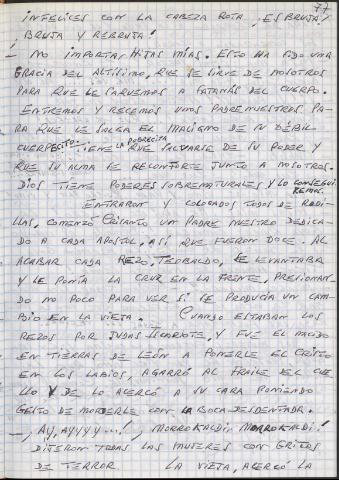 77
INFELICES CON LA CABEZA ROTA, ¡ES BRUJA!
¡BRUJA Y REBRUJA!
— NO IMPORTA, HIJAS MÍAS. ESTO HA SIDO UNA
GRACIA DEL ALTÍSIMO, QUE SE SIRVE DE NOSOTROS
PARA QUE LE SAQUEMOS A SATANÁS DEL CUERPO.
ENTREMOS Y RECEMOS UNOS PADRENUESTROS PA-
RA QUE LE SALGA EL MALIGNO DE SU DÉBIL
CUERPECITO. TIENE LA POBRECITA QUE SALVARSE DE SU PODER Y
QUE SU ALMA SE RECONFORTE JUNTO A NOSOTROS.
DIOS TIENE PODERES SOBRENATURALES Y LO CONSEGUI-
REMOS.
ENTRARON Y COLOCADOS TODOS DE RODI-
LLAS, COMENZÓ CRISANTO UN PADRE NUESTRO DEDICA-
DO A CADA APOSTOL, ASÍ QUE FUERON DOCE. AL
ACABAR CADA REZO, TEOBALDO, SE LEVANTABA
Y LE PONÍA LA CRUZ EN LA FRENTE, PRESIONAN-
DO NO POCO PARA VER SI SE PRODUCÍA UN CAM-
BIO EN LA VIEJA. CUANDO ESTABAN LOS
REZOS POR JUDAS ISCARIOTE, Y FUE EL NACIDO
EN TIERRAS DE LEÓN A PONERLE EL CRISTO
EN LOS LABIOS, AGARRÓ AL FRAILE DEL CUE-
LLO Y SE LO ACERCÓ A SU CARA PONIENDO
GESTO DE MORDERLE CON LA BOCA DESDENTADA.
— ¡AY, AYYYY...!, ¡MORROKALDI, MORROKALDI!
DIJERON TODAS LAS MUJERES CON GRITOS
DE TERROR LA VIEJA, ACERCÓ LA